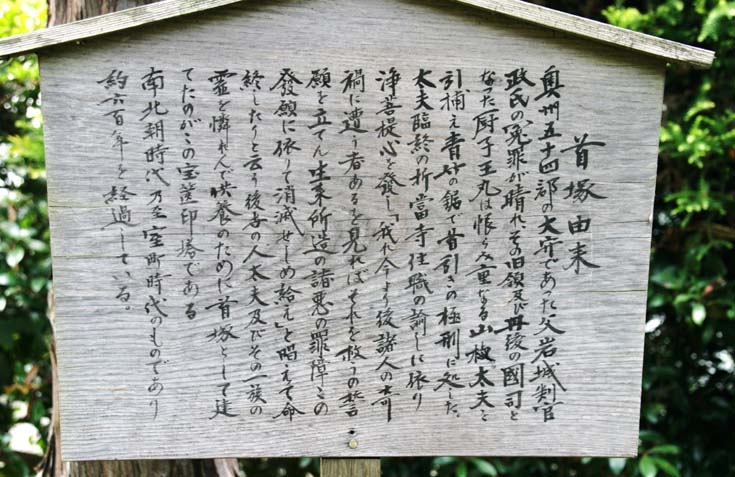 首塚由来
奥州五十四郡の大守であった父岩城判官
政氏の冤罪が晴れ、その旧領及び丹後の國司と
なった厨子王丸は恨み重なる山椒太夫を
引捕え青竹の鋸で首引きの極刑に処した。
太夫臨終の折當寺住職の諭しに依り
浄菩提心を發し「我れ今より後諸人の奇
禍に遭う者あるを見ればそれを救うの誓
願を立てん 生来所造の諸悪の罪障この
發願に依りて消滅せしめ給え」と唱えて命
終したりと云う後者の人太夫及びその一族の
霊を憐れんで供養のために首塚として建
てたのがこの宝篋印塔である
南北朝時代乃至室町時代のものであり
約六百年を経過している。